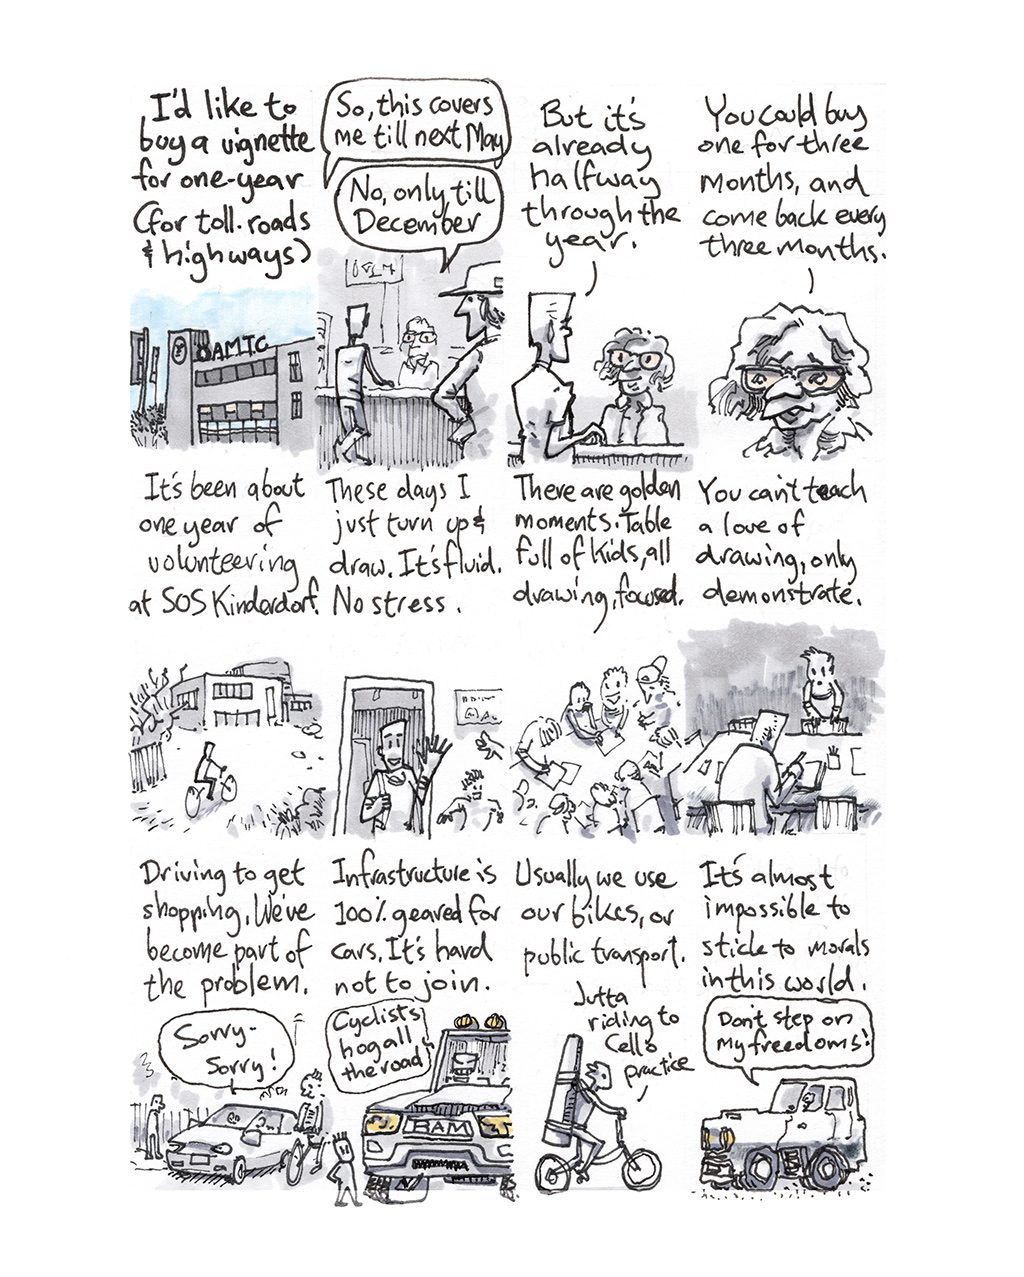 I'd like to
buy a vignette
for one-year
(for toll. roads
& highways)
ÖAMTC
So, this covers
me till next May
No, only till
December
But it's
already
halfway
through the
year.
You could buy
one for three
months, and
come back every
three months.
It's been about
one year of
volunteering
at SOS Kinderdorf.
These days I
just turn up &
draw. It's fluid.
No stress.
There are golden
moments. Table
full of kids, all
drawing, focused.
You can't teach
a love of
drawing, only
demonstrate.
Driving to get
shopping. We've
become part of
the problem.
Sorry-
Sorry!
Infrastructure is
100% geared for
cars. It's hard
not to join.
Cyclists
hog all
the road
BAM
Usually we use
our bikes, or
public transport.
Jutta
riding to
Cello
practice
It's almost
impossible to
stick to morals
in this world.
Don't step on
my freedoms!